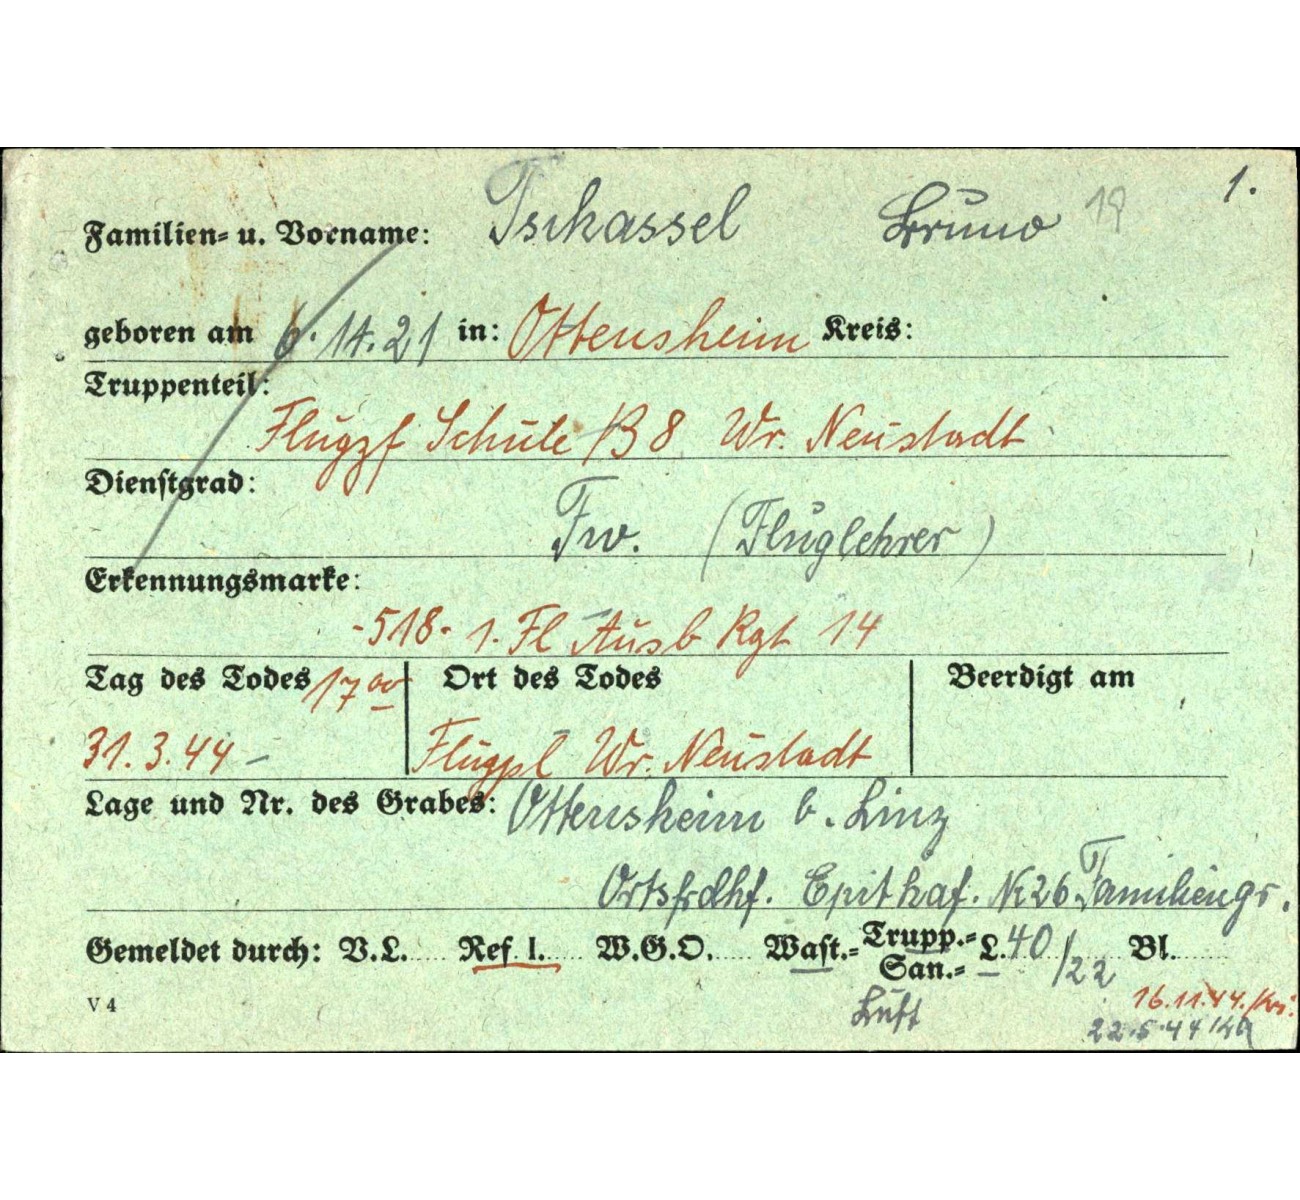 1.
Familien- u. Vorname: Tschassel Bruno 19
geboren am 6.14.21 in: Ottensheim Kreis:
Truppenteil:
Flugzf Schule B 8 Wr. Neustadt
Dienstgrad:
Fw. (Fluglehrer)
Erkennungsmarke:
-518- 1. Fl Ausb Rgt 14
Tag des Todes 17 00 Ort des Todes Beerdigt am
31.3.44 - Flugpl Wr. Neustadt
Lage und Nr. des Grabes: Ottensheim b. Linz
Ortsfrdhf. Epithaf. Nr 26 Familiengr.
Gemeldet durch: V.L. Ref I. W.G.O. Wast.- Trupp.- San.- L. 40/22 Bl.
V 4 Luft 16.11.44./
22.5.44